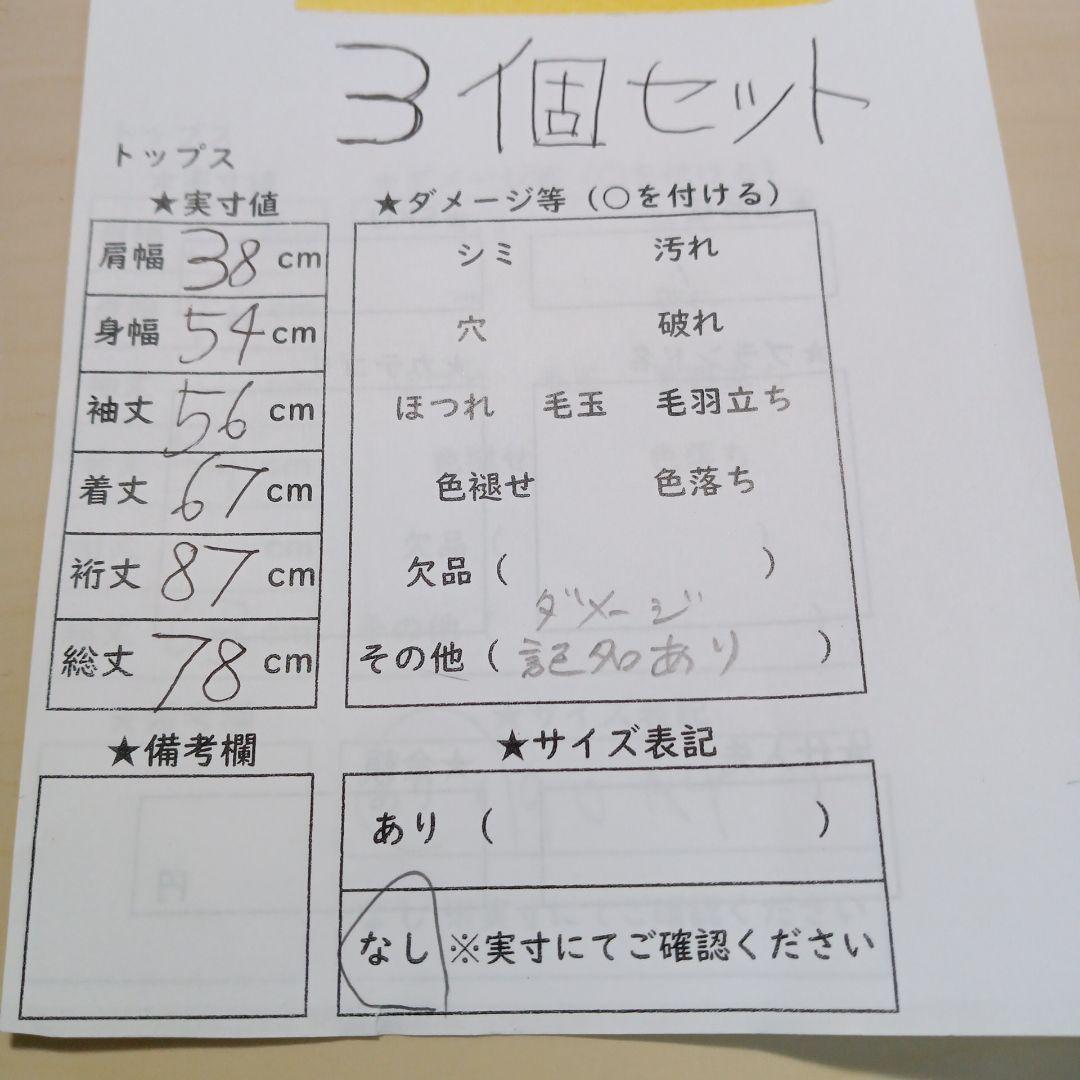 3個セット
トップス
★実寸値
肩幅 38 cm
身幅 54 cm
袖丈 56 cm
着丈 67 cm
裄丈 87 cm
総丈 78 cm
★備考欄
★ダメージ等（○を付ける）
シミ 汚れ
穴 破れ
ほつれ 毛玉 毛羽立ち
色褪せ 色落ち
欠品（ ）
ダメージ
その他（ 記名あり ）
★サイズ表記
あり （ ）
なし ※実寸にてご確認ください